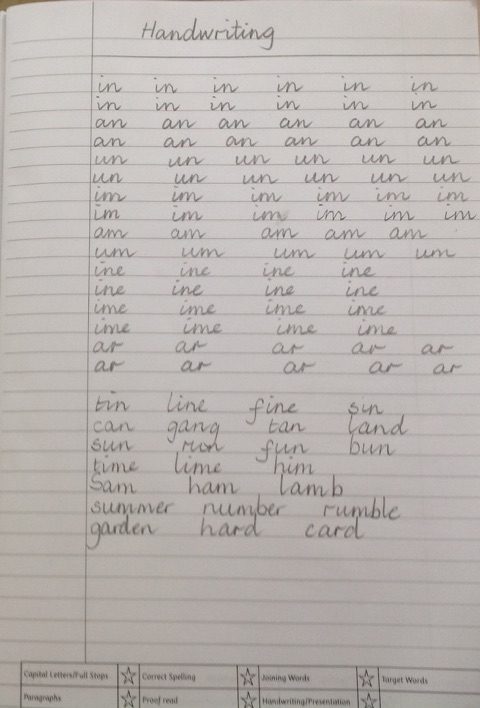 Handwriting
in in in in in in
in in in in in in
an an an an an an
an an an an an an
un un un un un un
un un un un un un
im im im im im im
im im im im im im
am am am am am
um um um um um
ine ine ine ine
ine ine ine ine
ime ime ime ime
ime ime ime ime
ar ar ar ar ar
ar ar ar ar ar
tin line fine sin
can gang tan land
sun run fun bun
time lime him
Sam ham lamb
summer number rumble
garden hard card
Capital Letters/Full Stops Correct Spelling Joining Words Target Words
Paragraphs Proof read Handwriting/Presentation